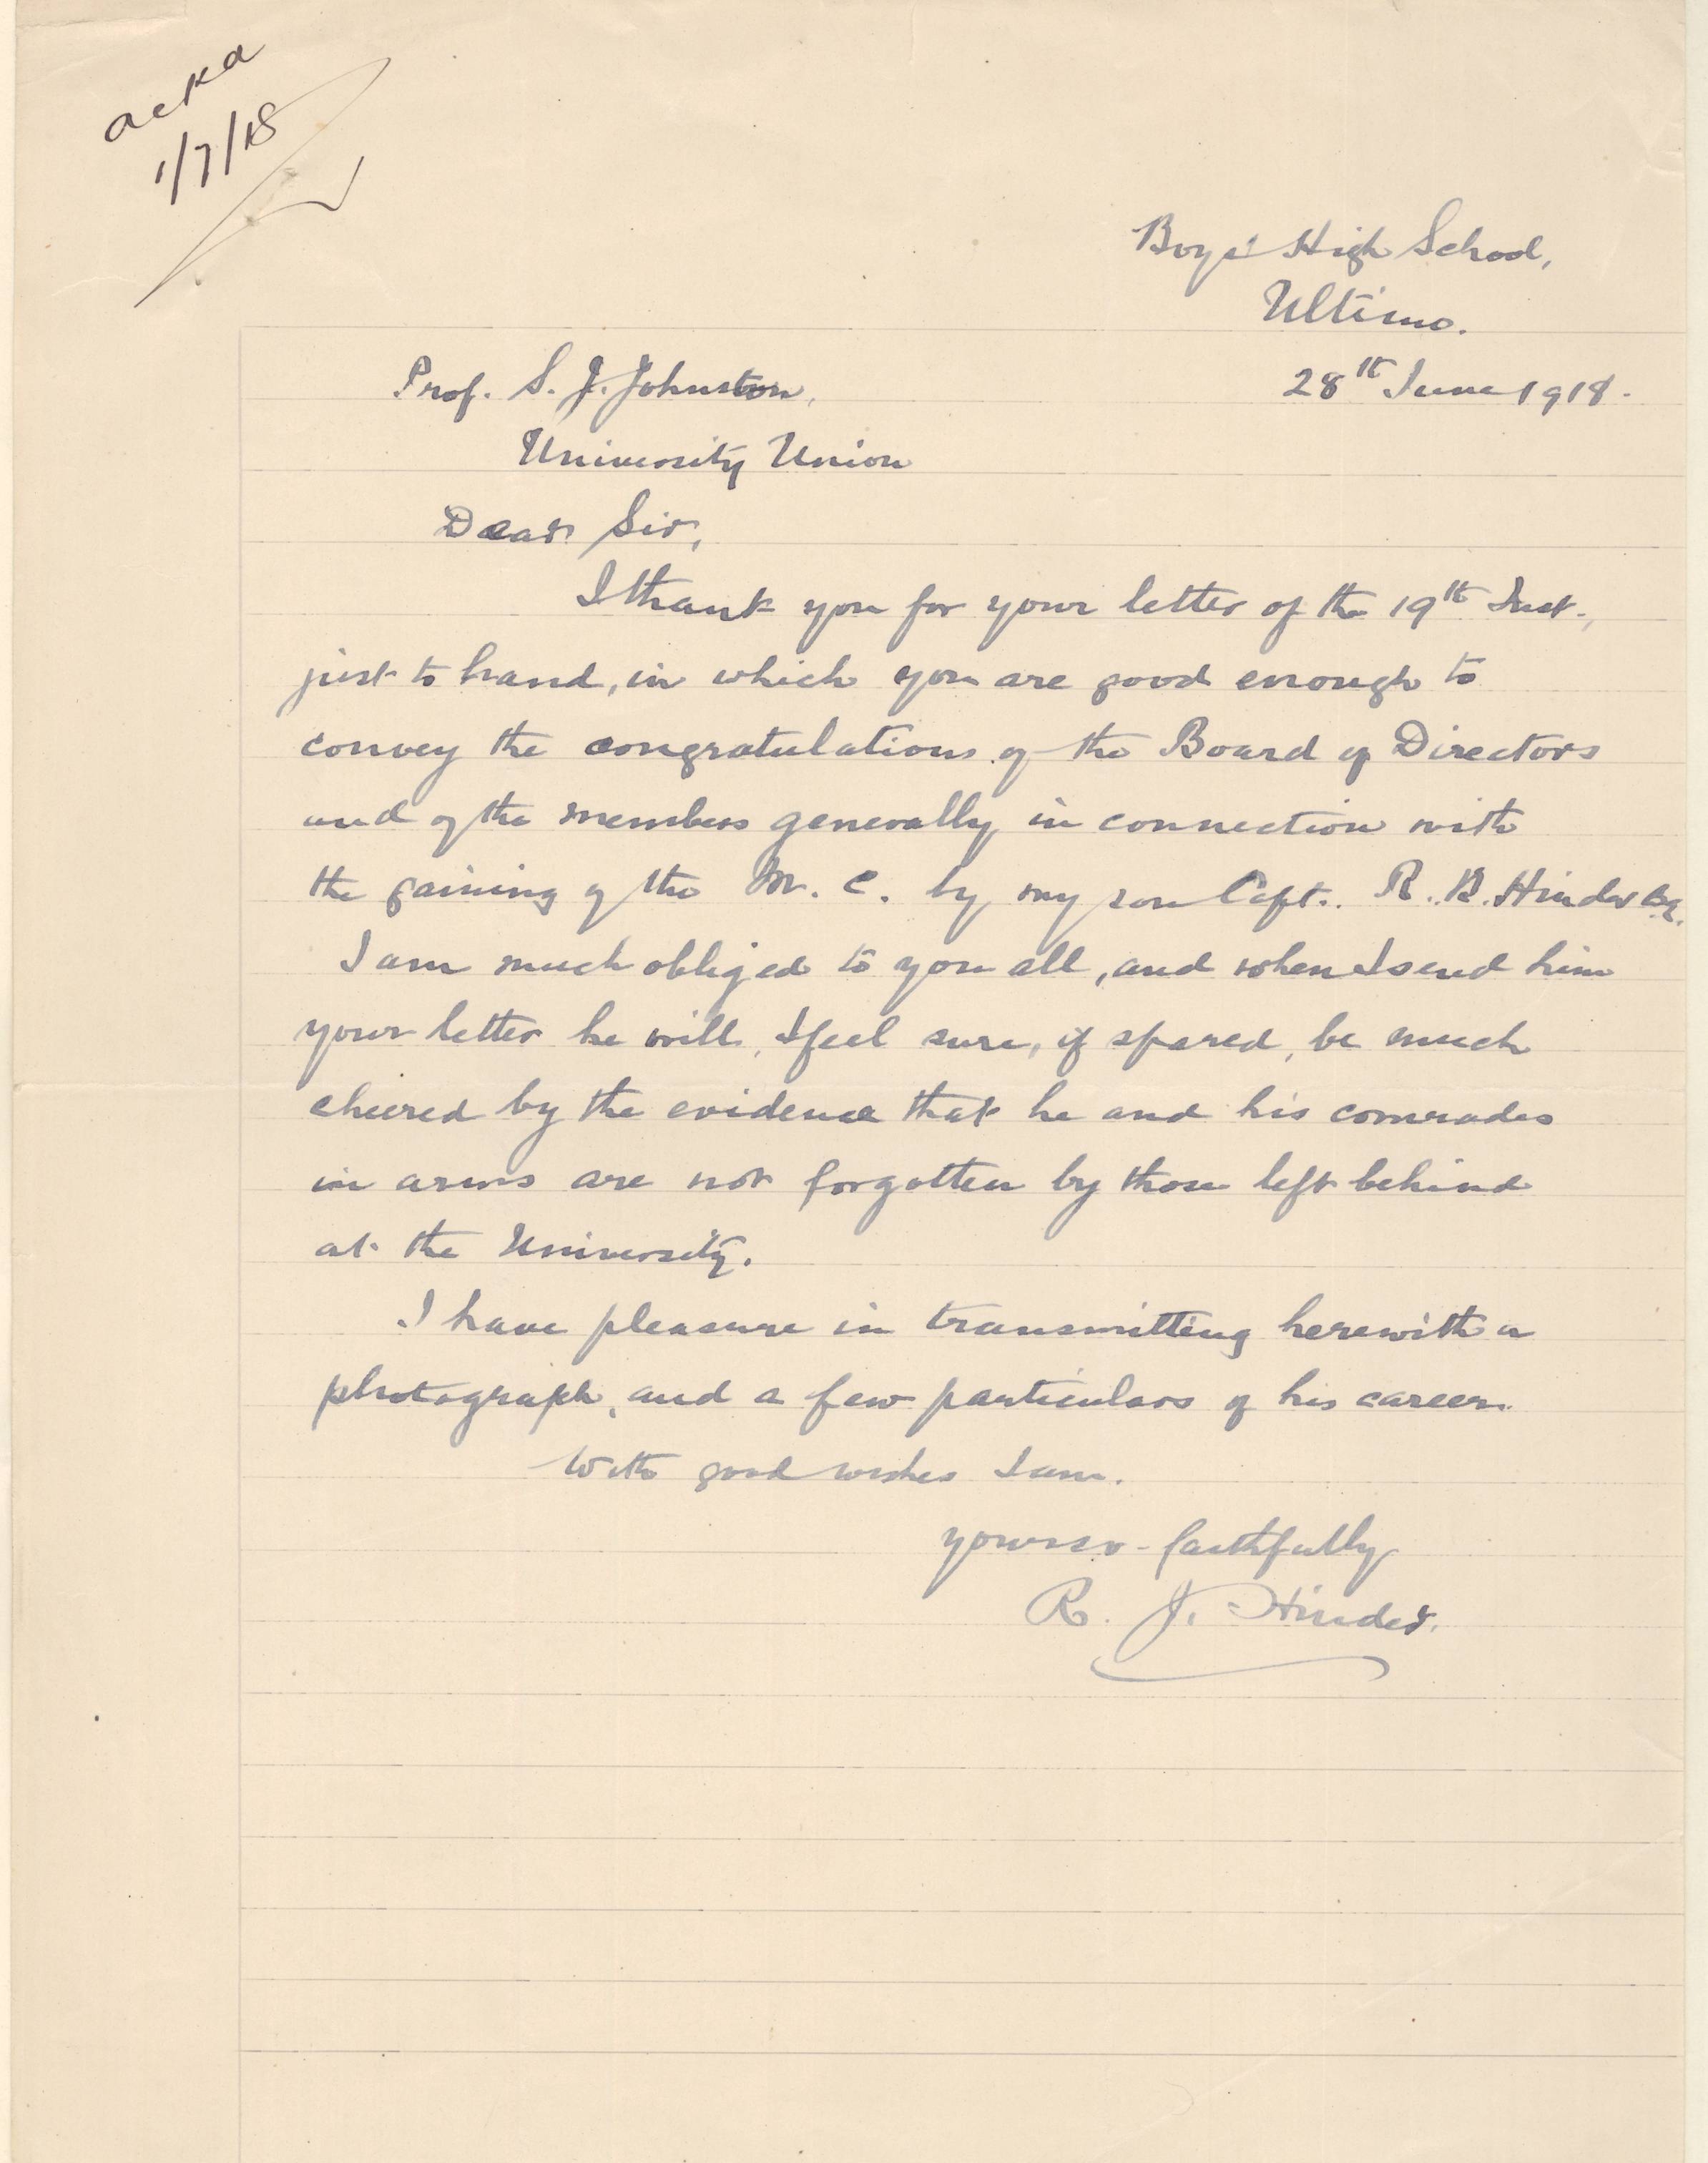 ackd
1/7/18
Boys' High School,
Ultimo.
28th June 1918.
Prof. S. J. Johnston,
University Union
Dear Sir,
I thank you for your letter of the 19th Inst.,
just to hand, in which you are good enough to
convey the congratulations of the Board of Directors
and of the members generally in connection with
the gaining of the M. C. by my son Capt. R. B. Hinder
I am much obliged to you all, and when I send him
your letter he will, I feel sure, if spared, be much
cheered by the evidence that he and his comrades
in arms are not forgotten by those left behind
at the University.
I have pleasure in transmitting herewith a
photograph, and a few particulars of his career.
With good wishes I am.
yours faithfully
R. J. Hinder.